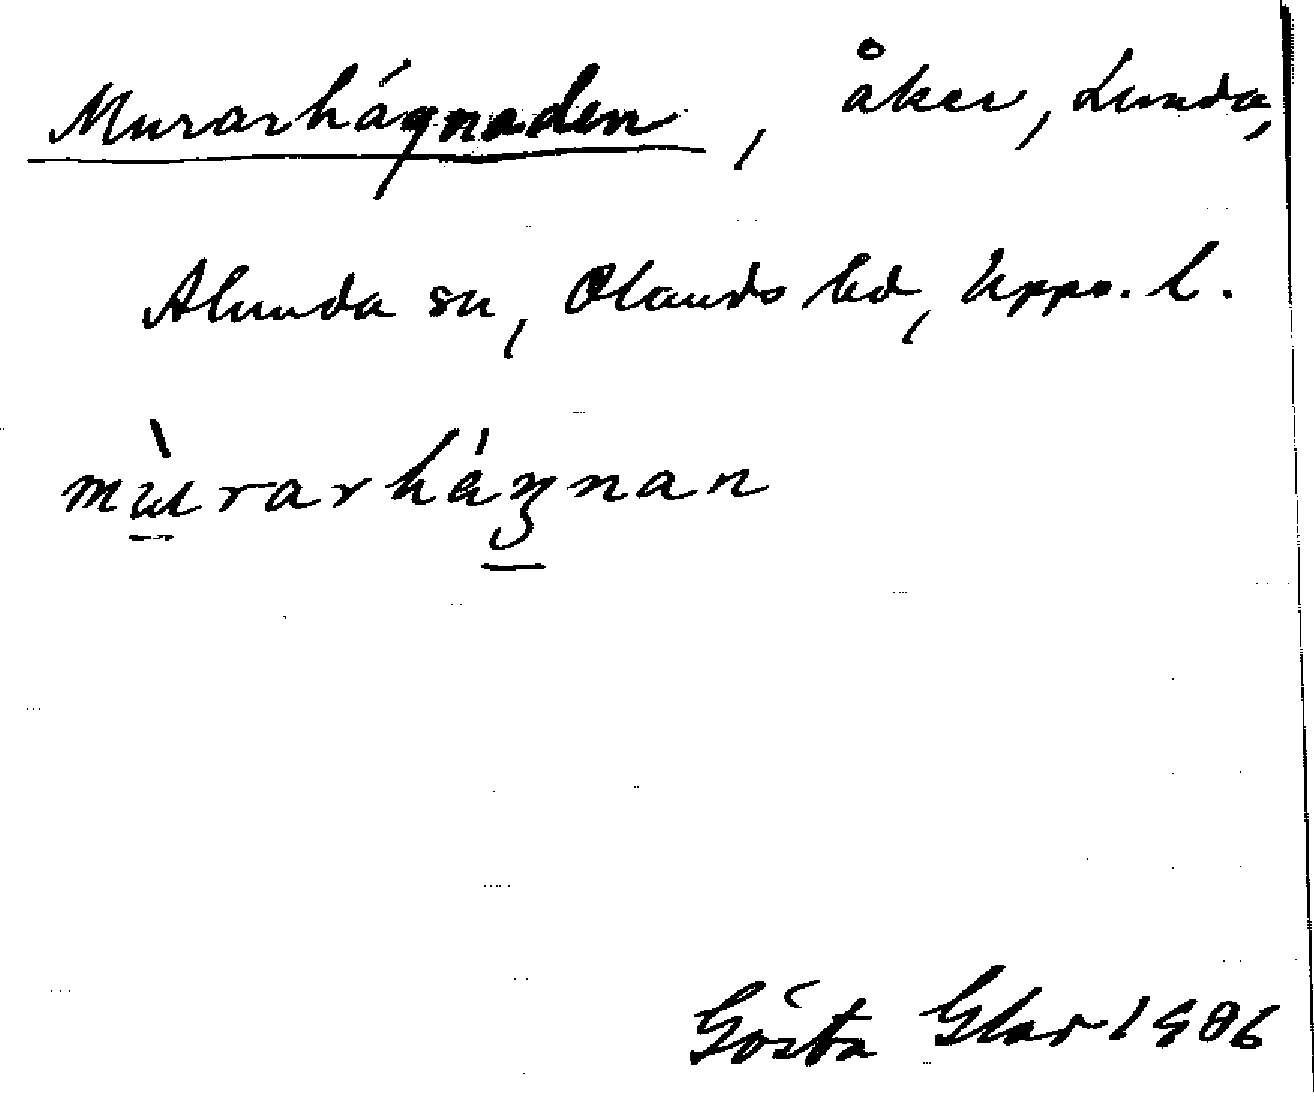 Murarhágnaden, åker, Lunda,
Alunda sn, Olands hd, Upps. l.
mùrarháꝫnan
Gösta Glar 1986